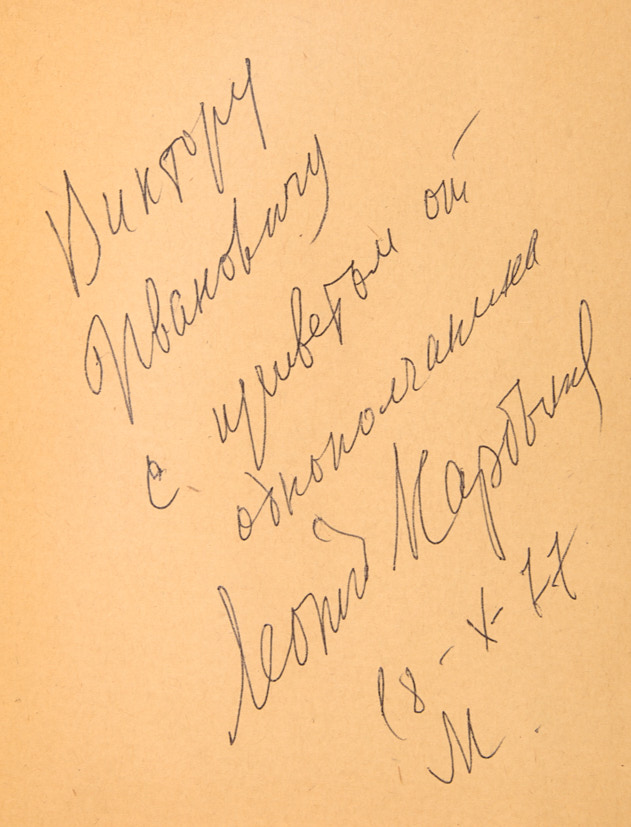 Виктору
Ивановичу
с приветом от
однополчанина
Леонид
18-X-77
М.